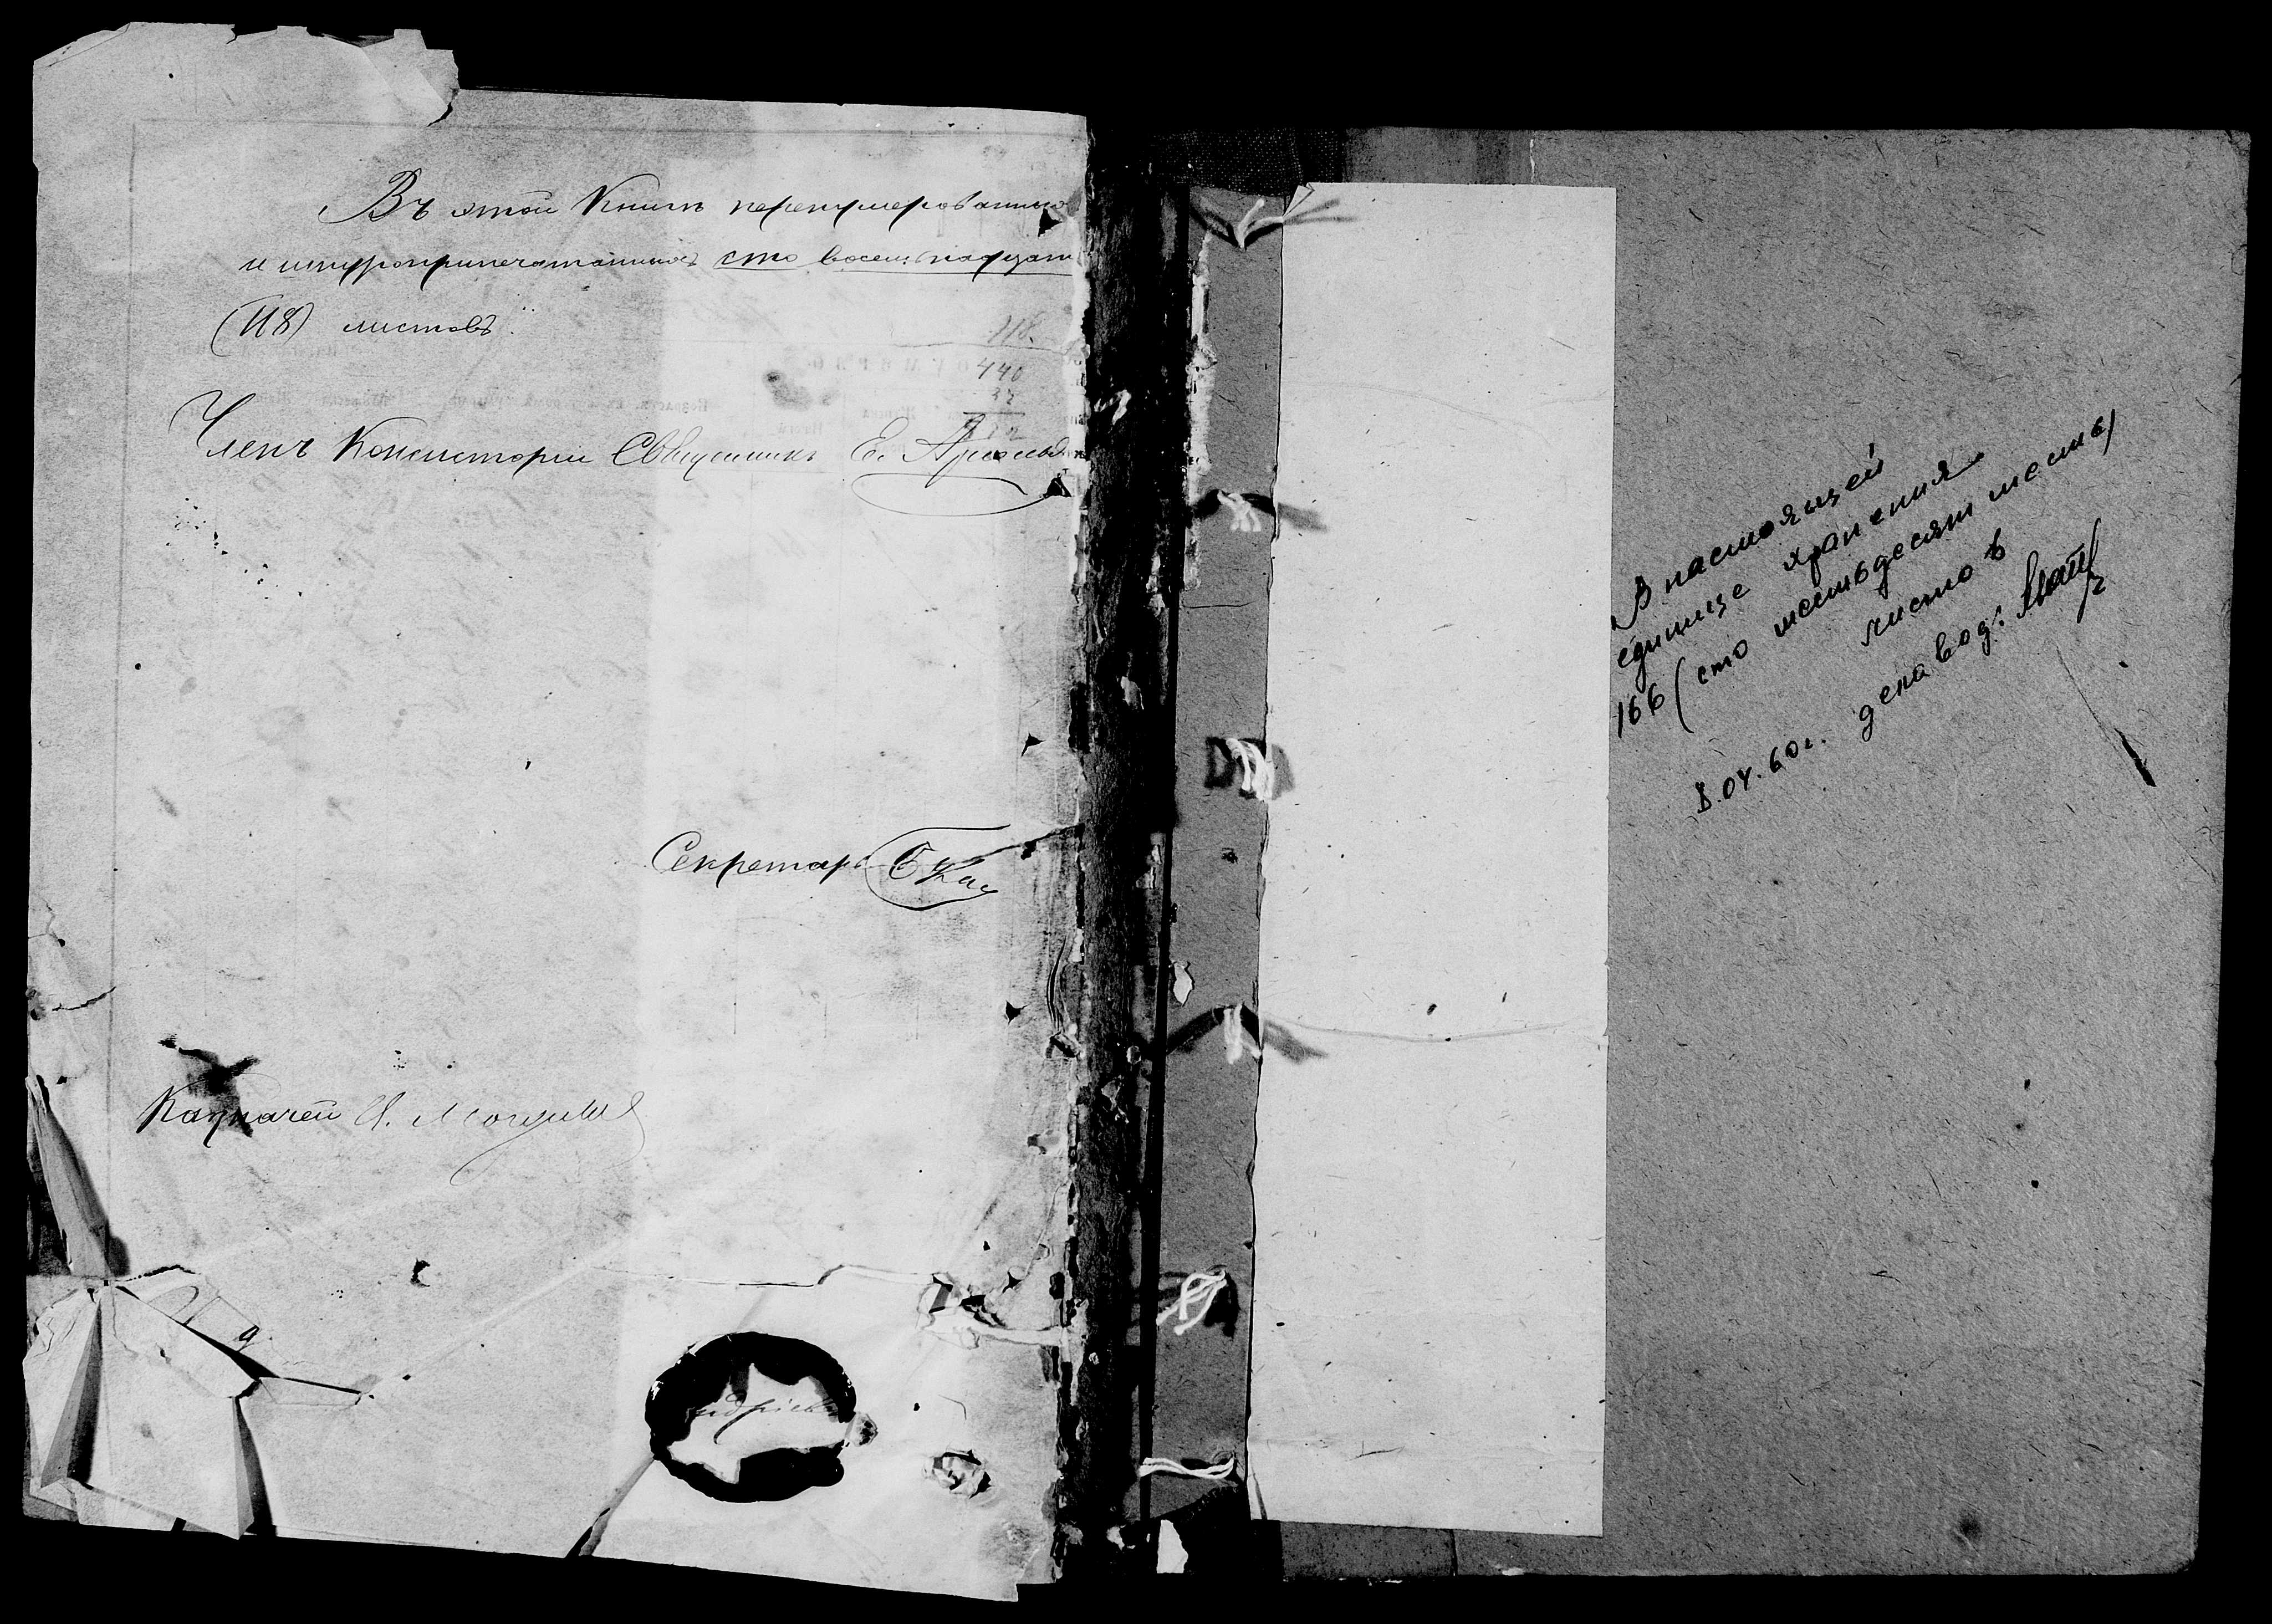 Въ этой Книгѣ перенумерованныхъ
и шнуроприпечатанныхъ сто восемьнадцать
(118) листовъ.
118.
440
37
Членъ Консисторіи Священникъ Е.
Секретарь
Казначей
В настоящей
единице хранения
166 (сто шестьдесят шесть)
листов
8.04.60г. делавод: